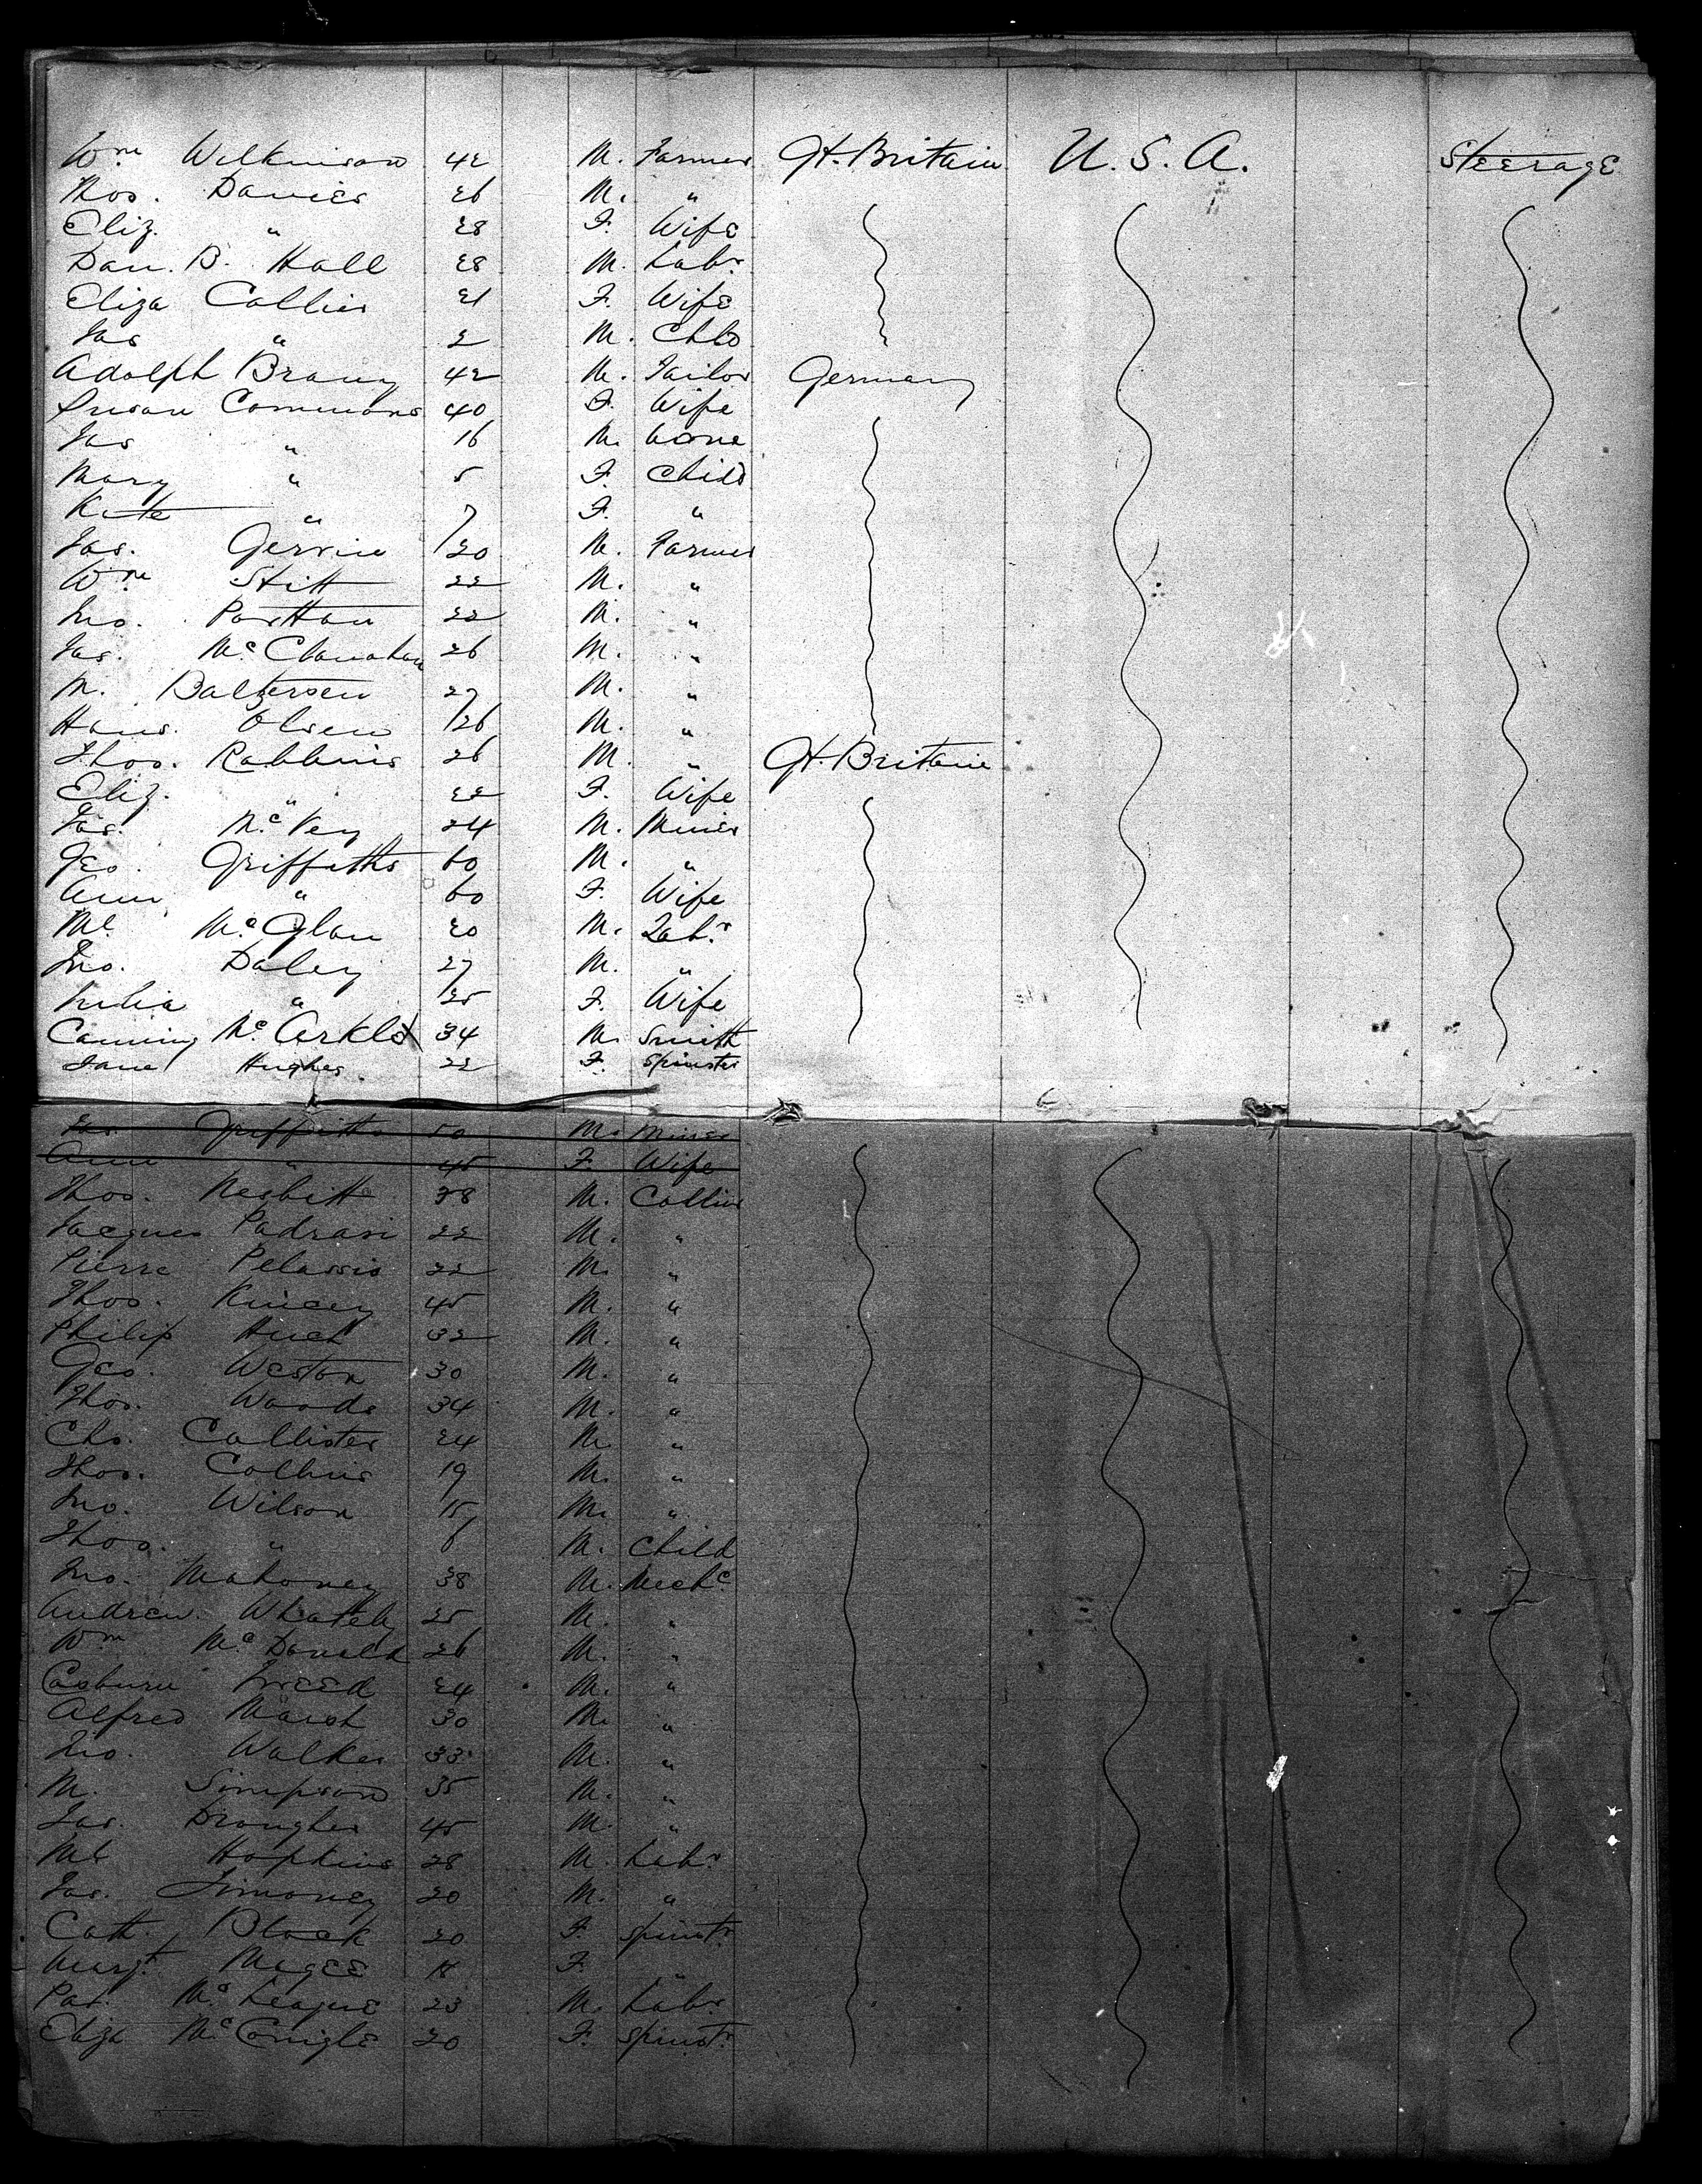 Wm Wilkinson 42 M. Farmer Gt. Britain U.S.A. Steerage
Thos. Davies 26 M. "
Eliz. " 28 F. Wife
Dan. B. Hall 28 M. Labr.
Eliza Collier 21 F. Wife
Jas " 2 M. Chld
Adolph Brauny 42 M. Tailor Germany
Susan Commons 40 F. Wife
Jas " 16 M. None
Mary " 5 F. Child
Kate " 7 F. "
Jas. 20 M. Farmer
Wm Stitt 22 M. "
Jno. 22 M. "
Jas. McClanahan 26 M. "
M. Baltzersen 27 M. "
Hans. Olsen 26 M. "
Thos. Robbins 26 M. " Gt. Britain
Eliz. " 22 F. Wife
Jas. McVey 24 M. Miner
Geo. Griffiths 60 M. "
Ann " 60 F. Wife
Ml. McGlan 20 M. Labr.
Jno. Daley 27 M. "
Julia " 25 F. Wife
Canning McArkle 34 M. Smith
Jane Hughes 22 F. Spinster
Griffiths 50 M. Miner
Ann " 45 F. Wife
Thos. Nesbitt 38 M. Collier
Jacques Padrasi 22 M. "
Pierre Pelassio 22 M. "
Thos. Kincey 45 M. "
Philip 32 M. "
Geo. Weston 30 M. "
Thos. Woods 34 M. "
Chs. Callister 24 M. "
Thos. Collins 19 M. "
Jno. Wilson 15 M. "
Thos. " 6 M. Child
Jno. Mahoney 38 M. Mechc
Andrew. Whately 25 M. "
Wm McDonald 26 M. "
24 M. "
Alfred Marsh 30 M. "
Jno. Walker 33 M. "
M. Simpson 35 M. "
Jas. Drougher 45 M. "
Ml Hopkins 28 M. Labr.
Jas. Timoney 20 M. "
Cath. Black 20 F. Spinstr.
Margt. Magee 18 F. "
Pat. McLeague 23 M. Labr.
Eliza McConigle 20 F. Spinstr.